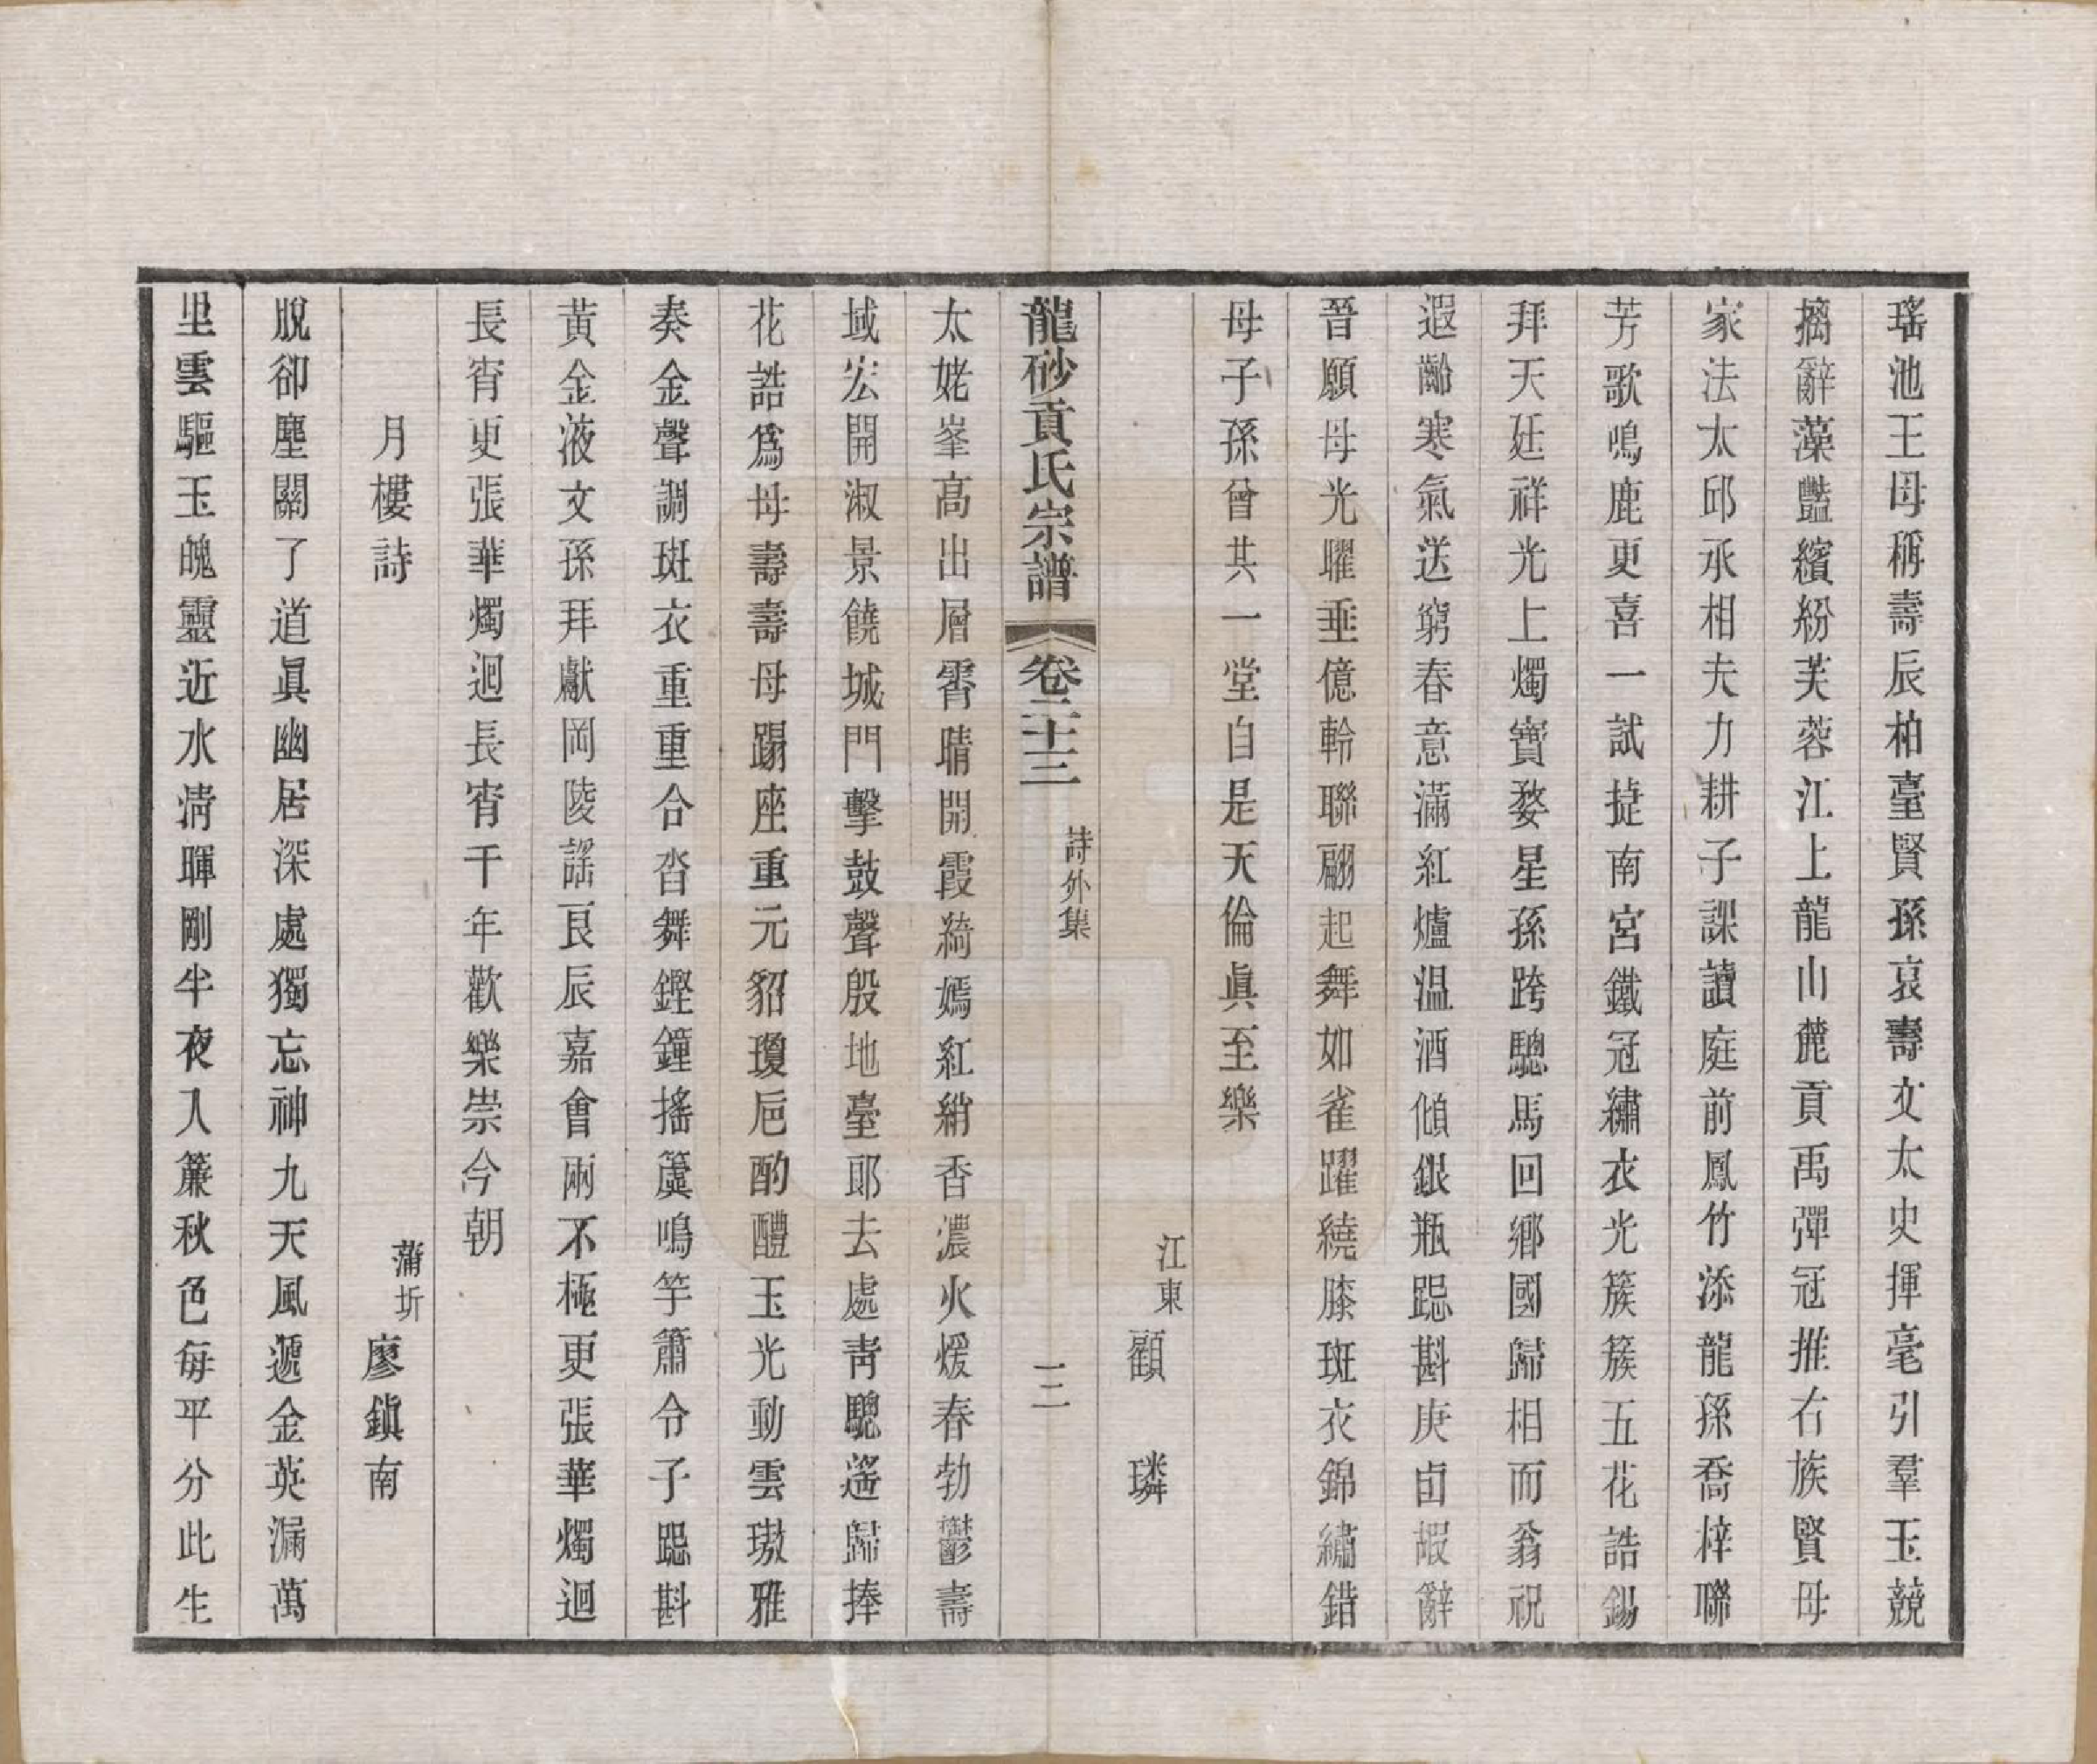 瑤池王母稱壽辰柏臺賢孫哀壽文太史揮毫引羣玉競
摛辭藻豔繽紛芙蓉江上龍山麓貢禹彈冠推右族賢母
家法太邱承相夫力耕子課讀庭前鳳竹添龍孫喬梓聯
芳歌鳴鹿更喜一試捷南宮鐵冠繡衣光簇簇五花誥錫
拜天廷祥光上燭寶婺星孫跨驄馬回鄉國歸相而翁祝
遐齡寒氣送窮春意滿紅爐温酒傾銀瓶跽斟庚卣嘏辭
晉願母光曜垂億齡聯翩起舞如雀躍繞膝斑衣錦繡錯
母子孫曾共一堂自是天倫眞至樂
江東顧璘
龍砂貢氏宗譜 卷二十三 詩外集 一二
太姥峯高出層霄晴開霞綺嫣紅綃香濃火煖春勃鬱壽
域宏開淑景饒城門擊鼓聲殷地臺郞去處靑驄遙歸捧
花誥爲母壽壽母踢座重元貂瓊巵酌醴玉光動雲璈雅
奏金聲調斑衣重重合沓舞鏗鐘搖簴鳴竽簫令子跽斟
黃金液文孫拜獻岡陵謡良辰嘉會兩不極更張華燭迴
長宵更張華燭迴長宵千年歡樂崇今朝
月樓詩
蒲圻廖鎭南
脫卻塵關了道眞幽居深處獨忘神九天風遞金英漏萬
里雲驅玉魄靈近水淸暉剛半夜入簾秋色每平分此生